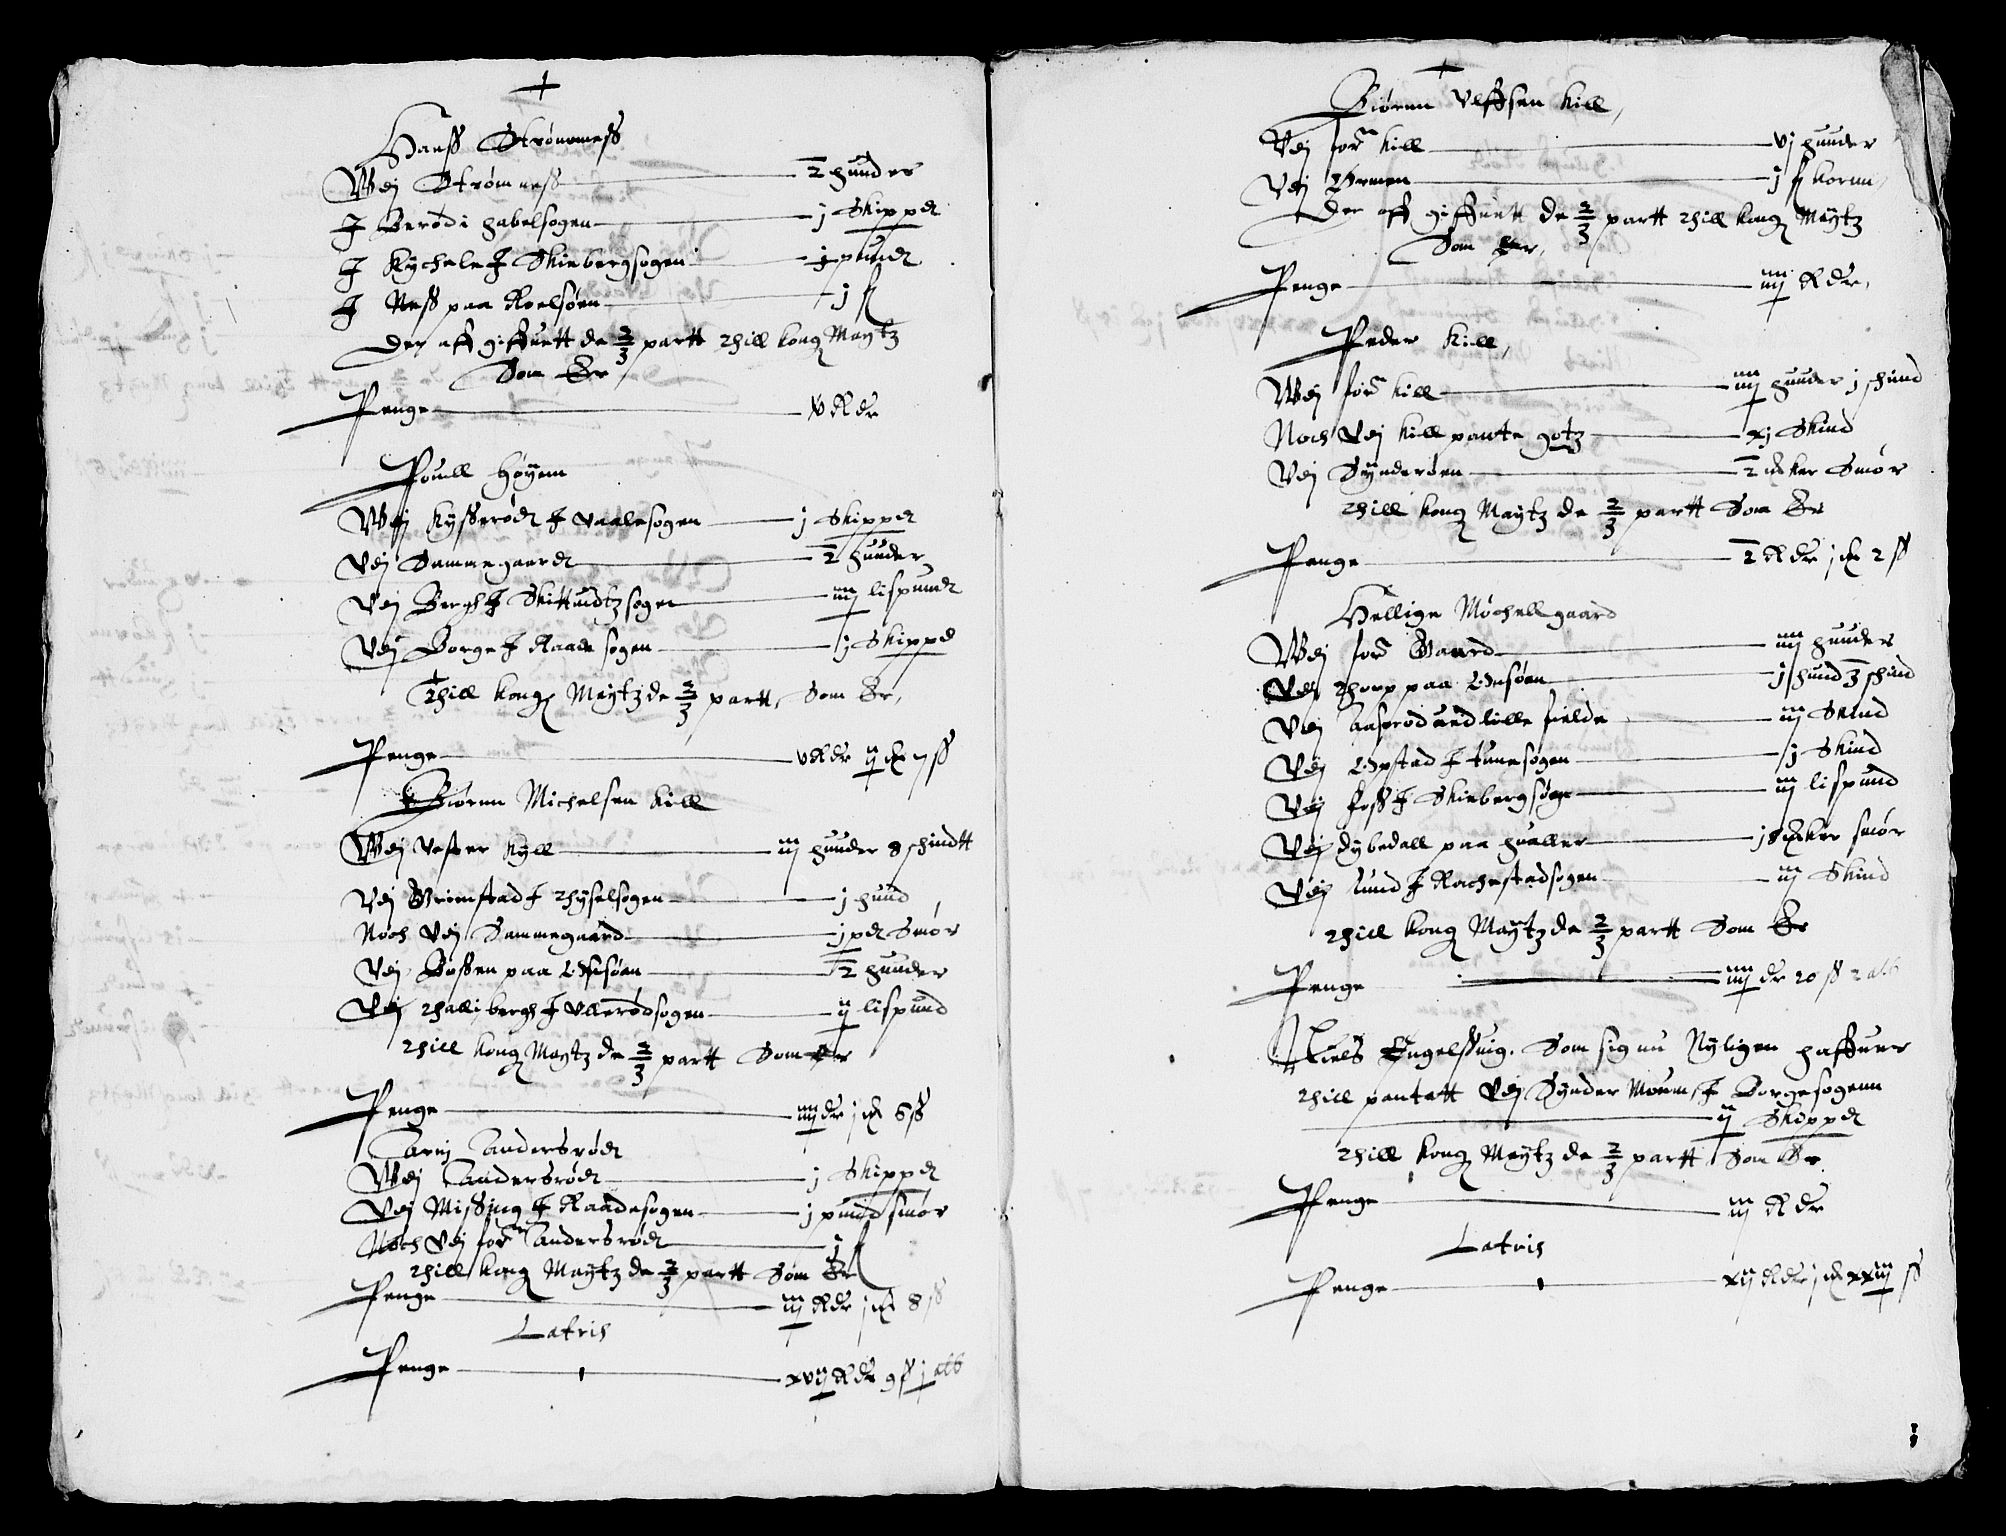 Hanss Strømness
Wdj Strømness 2 hunder
J Berød i habelsogen j Skippd
J Kychele J Skiebergsogen j pund
J Ness paa Roelsøen j
Der aff giffuett de 2/3 partt thill kong Maytz
Som Er
Penge v Rdr
Pouell Høyem
Wdj Kysserødt J Vaalesogen j Skippd
Vdj Dammegaardt 2 hunder
Vdj Bergh J Skittuedtzsogen iiij lispundt
Vdj Borge J Raade sogen j Skippd
Thill kong Maytz de 2/3 partt, Som Er,
Penge v Rdr ij 7 ss
Biørnn Michelsen Kiell
Wdj Vester Kyll iij hunder 8 schindtt
Vdj Grimstad J Thyselsogen j hund
Noch Vdj Dammegaard j pd Smør
Vdj Bossen paa Onsøen 2 hunder
Vdj Thallibergh J Ullerødsogen ij lispund
Thill kong Maytz de 2/3 partt Som Er
Penge iiij dr j 6 ss
Carij Andersrødt
Wdj Andersrødt j Skippd
Vdj Missing J Raadesogen j pund smør
Noch Vdj for Andersrødt j
Thill kong Maytz de 2/3 partt Som Er
Penge iij Rdr j 8 ss
Latris
Penge xvij Rdr 9 ss j alb
Biørnn Ulffsen Kiell,
Vdj for Kiell vj hunder
Vdj Ørmen j kornn,
Der aff giffuett de 2/3 partt thill kong Maytz
Som Er,
Penge iiij Rdr,
Peder Kiell,
Wdj for Kiell iiij hunder j schind
Noch Vdj Kiell pante gotz xj Skind
Vdj Synderøen 2 Smør
Thill kong Maytz de 2/3 partt Som Er
Penge 2 Rdr j 2 ss
Hellige Møchellgaard
Wdj for Gaard iiij hunder
Vdj Thorp paa Onsøen j hund 3 schind
Vdj Aaserød Lille fielde iij Skind
Vdj Opstad J Tunesogen j Skind
Vdj foss J Skiebergsogen iij lispund
Vdj Dybedall paa Hualler smør
Vdj Lund J Rachestadsogen iij Skind
Thill kong Maytz de 2/3 partt Som Er
Penge iiij dr 20 ss 2 alb
Niels Engelssuig. Som sig nu Nyligen haffuer
Thill pantatt Vdj Synder Moum, J Borgesogenn
ij Skippd
Thill kong Maytz de 2/3 partt Som Er
Penge iij Rdr
Latris
Penge xij Rdr j xxiij ss